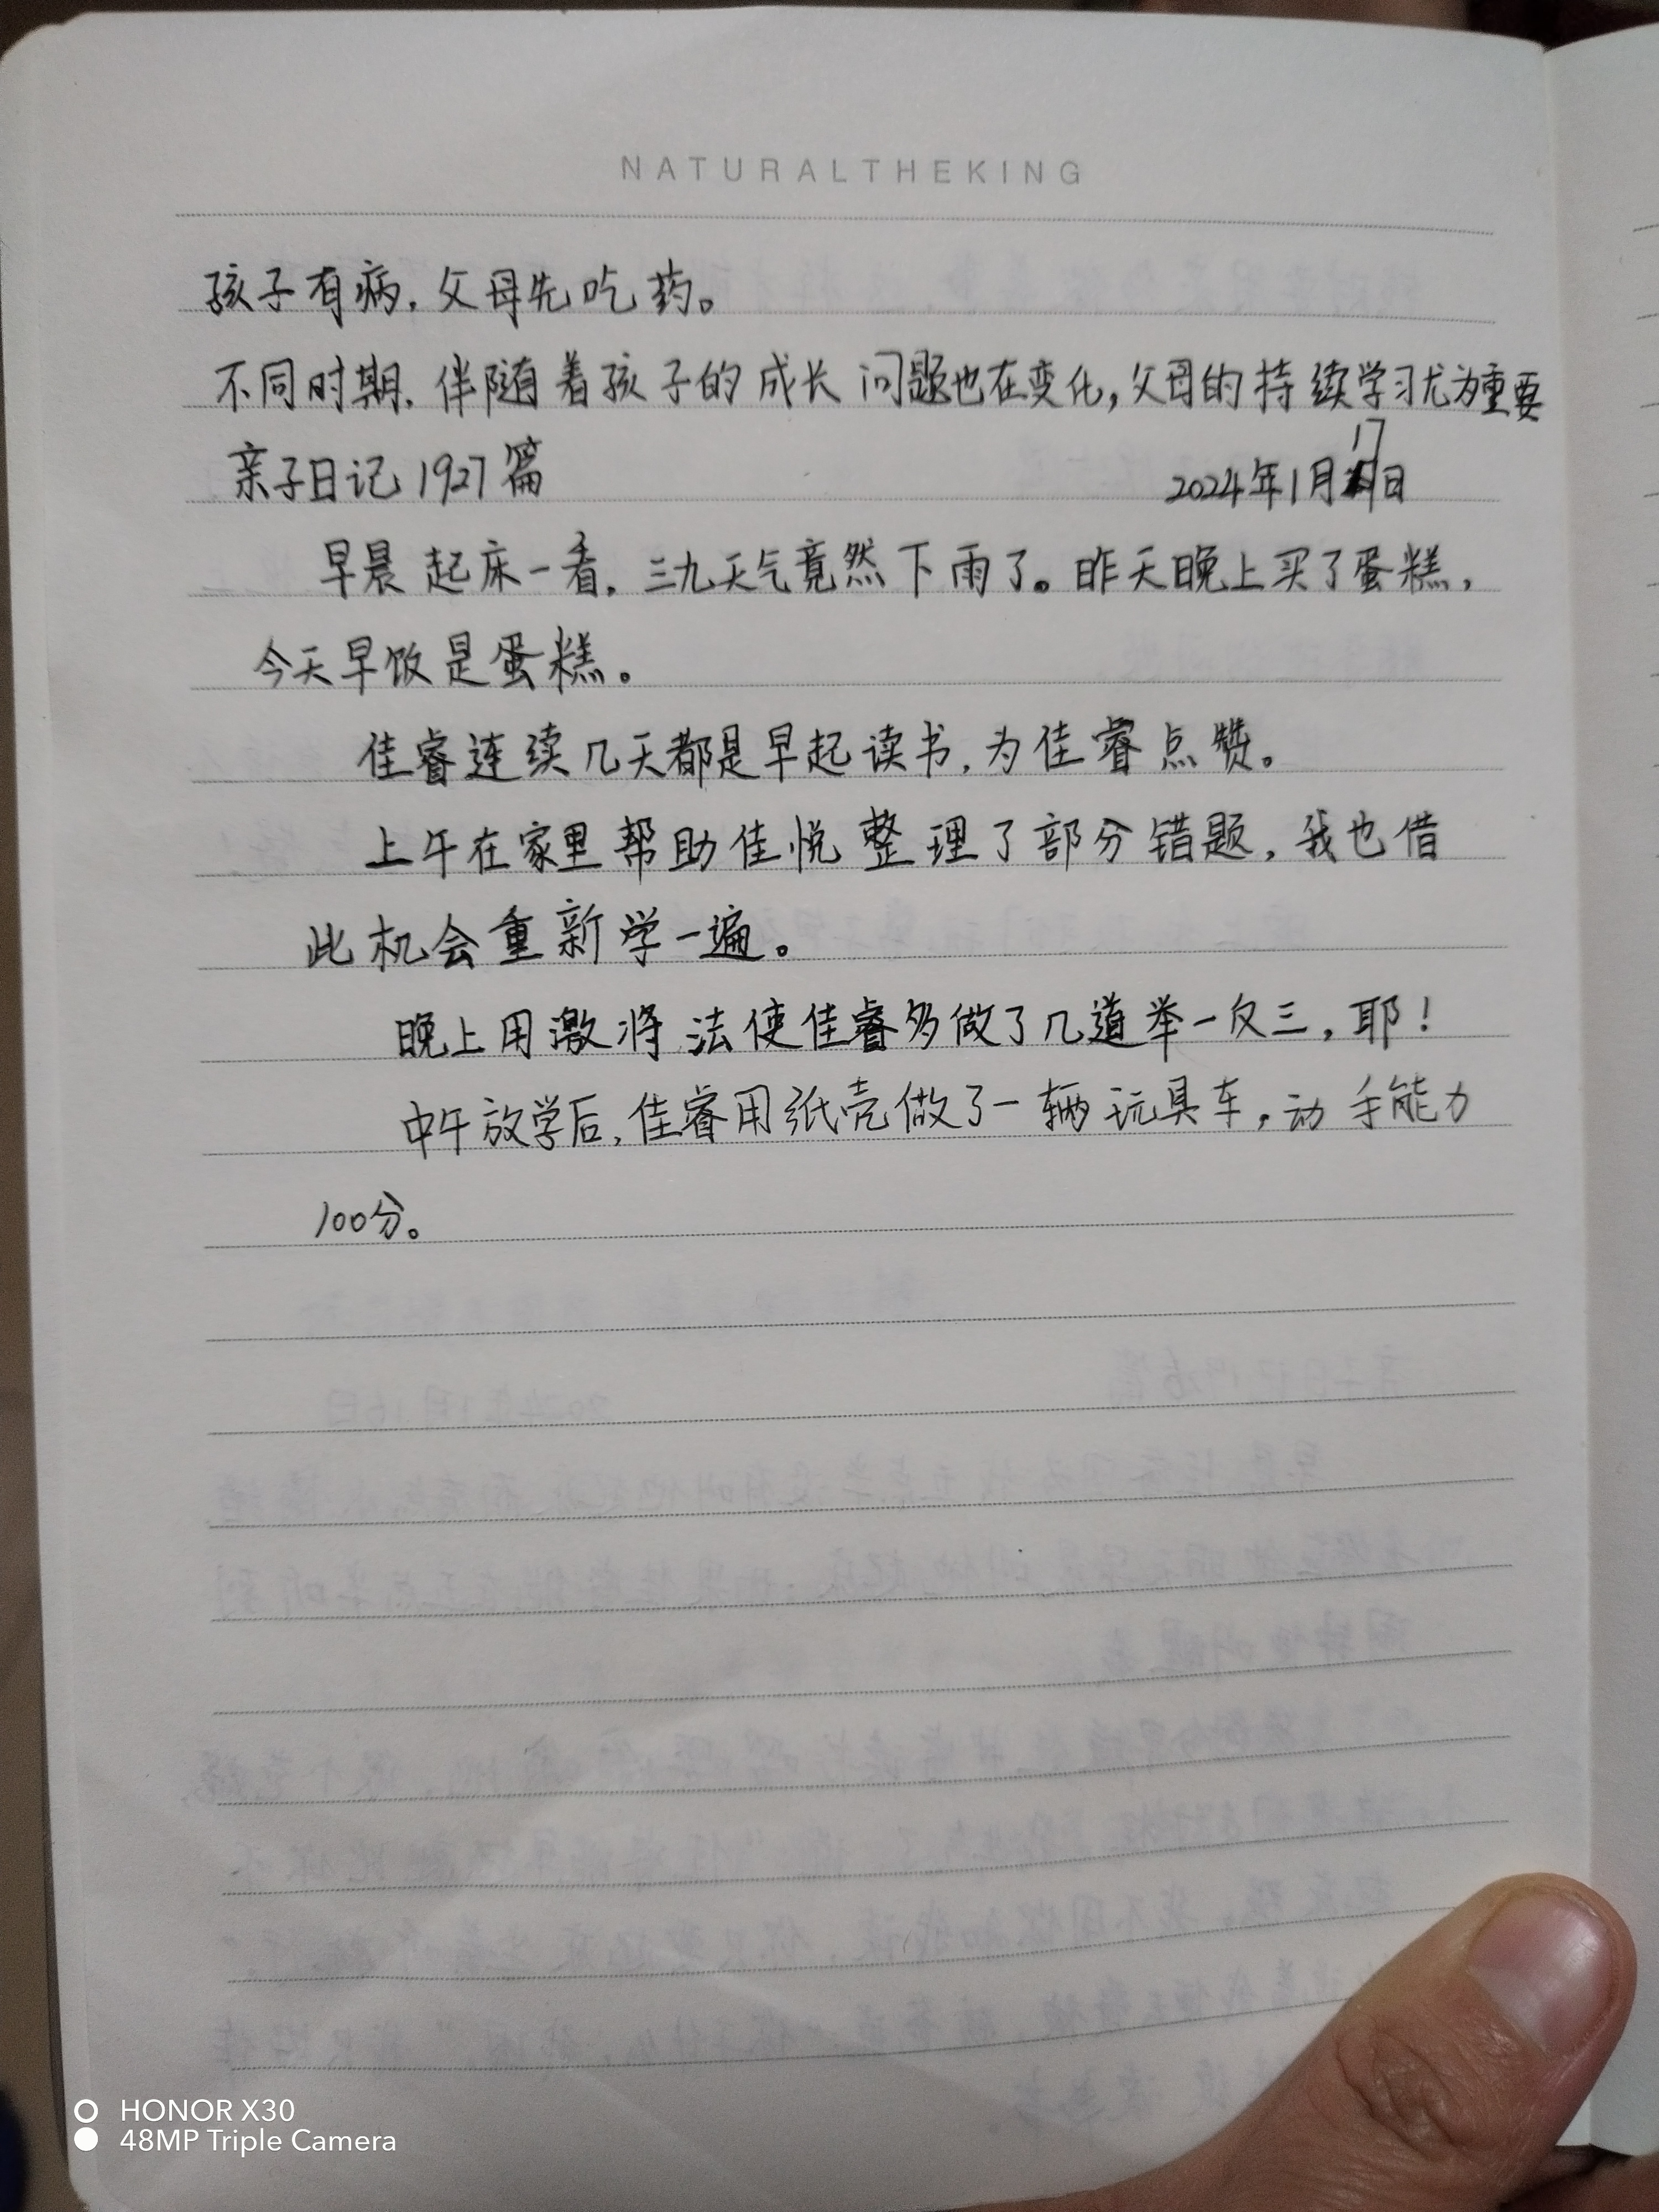 NATURALTHEKING
孩子有病，父母先吃药。
不同时期，伴随着孩子的成长问题也在变化，父母的持续学习尤为重要
亲子日记1927篇 2024年1月17日
早晨起床一看，三九天气竟然下雨了。昨天晚上买了蛋糕，
今天早饭是蛋糕。
佳睿连续几天都是早起读书，为佳睿点赞。
上午在家里帮助佳悦整理了部分错题，我也借
此机会重新学一遍。
晚上用激将法使佳睿多做了几道举一反三，耶！
中午放学后，佳睿用纸壳做了一辆玩具车，动手能力
100分。
HONOR X30
48MP Triple Camera